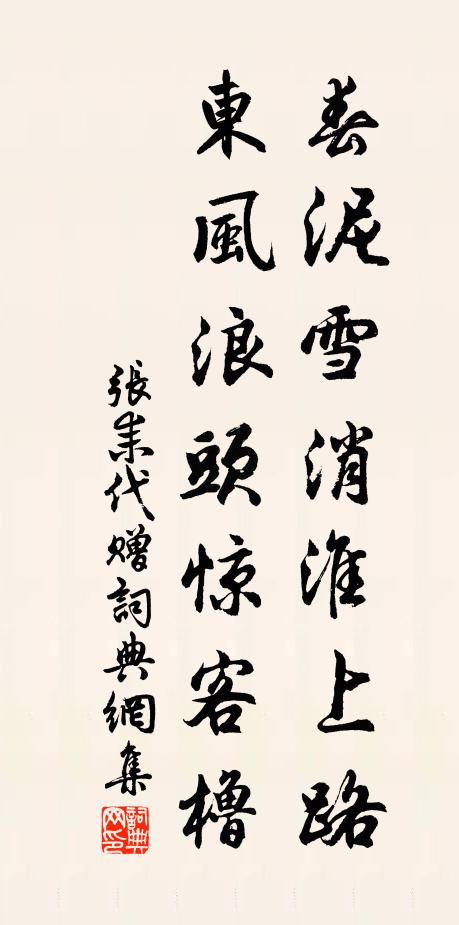 春泥雪消淮上路
東風浪頭惊客櫓
張耒代贈詞典網集
詞典网印